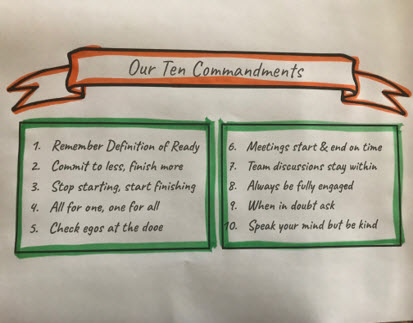 Our Ten Commandments
1. Remember Definition of Ready
2. Commit to less, finish more
3. Stop starting, start finishing
4. All for one, one for all
5. Check egos at the dooe
6. Meetings start & end on time
7. Team discussions stay within
8. Always be fully engaged
9. When in doubt ask
10. Speak your mind but be kind